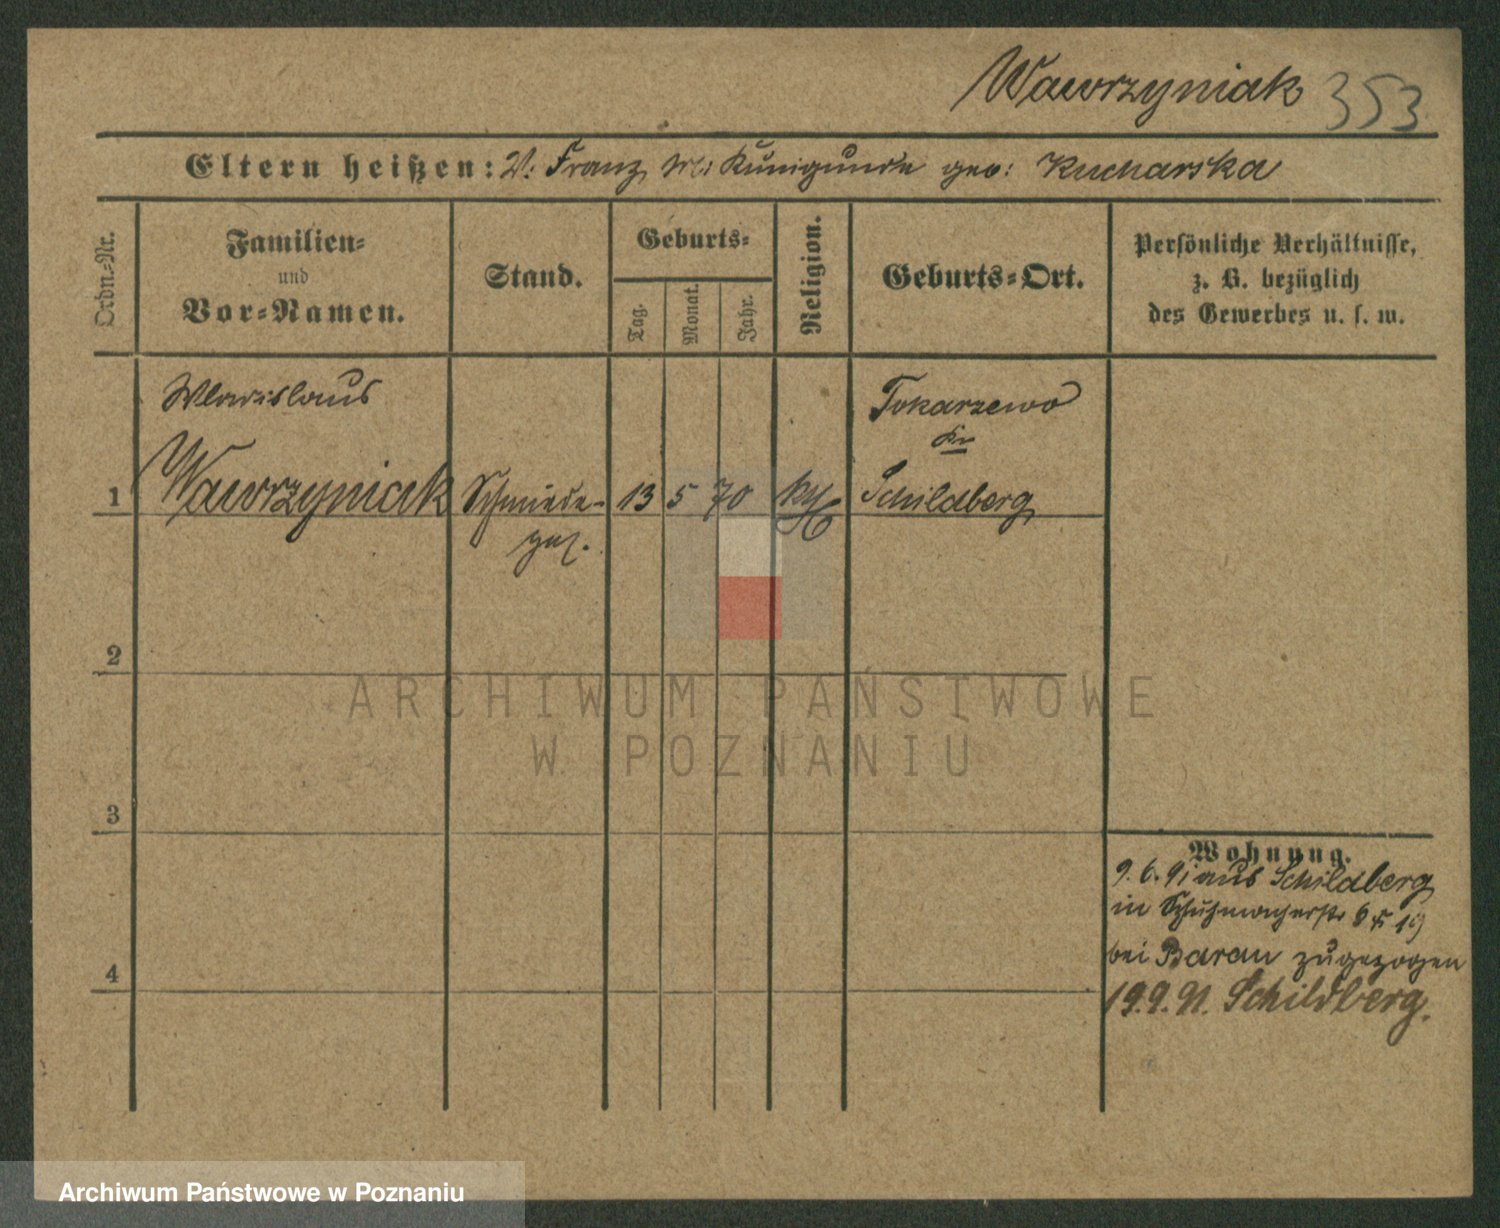 Wawrzyniak 353
Eltern heißen: V: Franz, M: Kunigunde geb: Kucharska
Ordn.=Nr.
Familien=
und
Vor=Namen.
Stand.
Geburts=
Tag.
Monat.
Jahr.
Religion.
Geburts=Ort.
Persönliche Verhältnisse,
z. B. bezüglich
des Gewerbes u. s. w.
Wladislaus
Tokarzewo
Kr
1 Wawrzyniak Schmiede- 13 5 70 kth Schildberg
ges.
2
ARCHIWUM PAŃSTWOWE
W POZNANIU
3
Wohnung.
9.6.91 aus Schildberg
in Schuhmacherstr 19
bei Baran zugezogen
4
19.9.91. Schildberg.
Archiwum Państwowe w Poznaniu